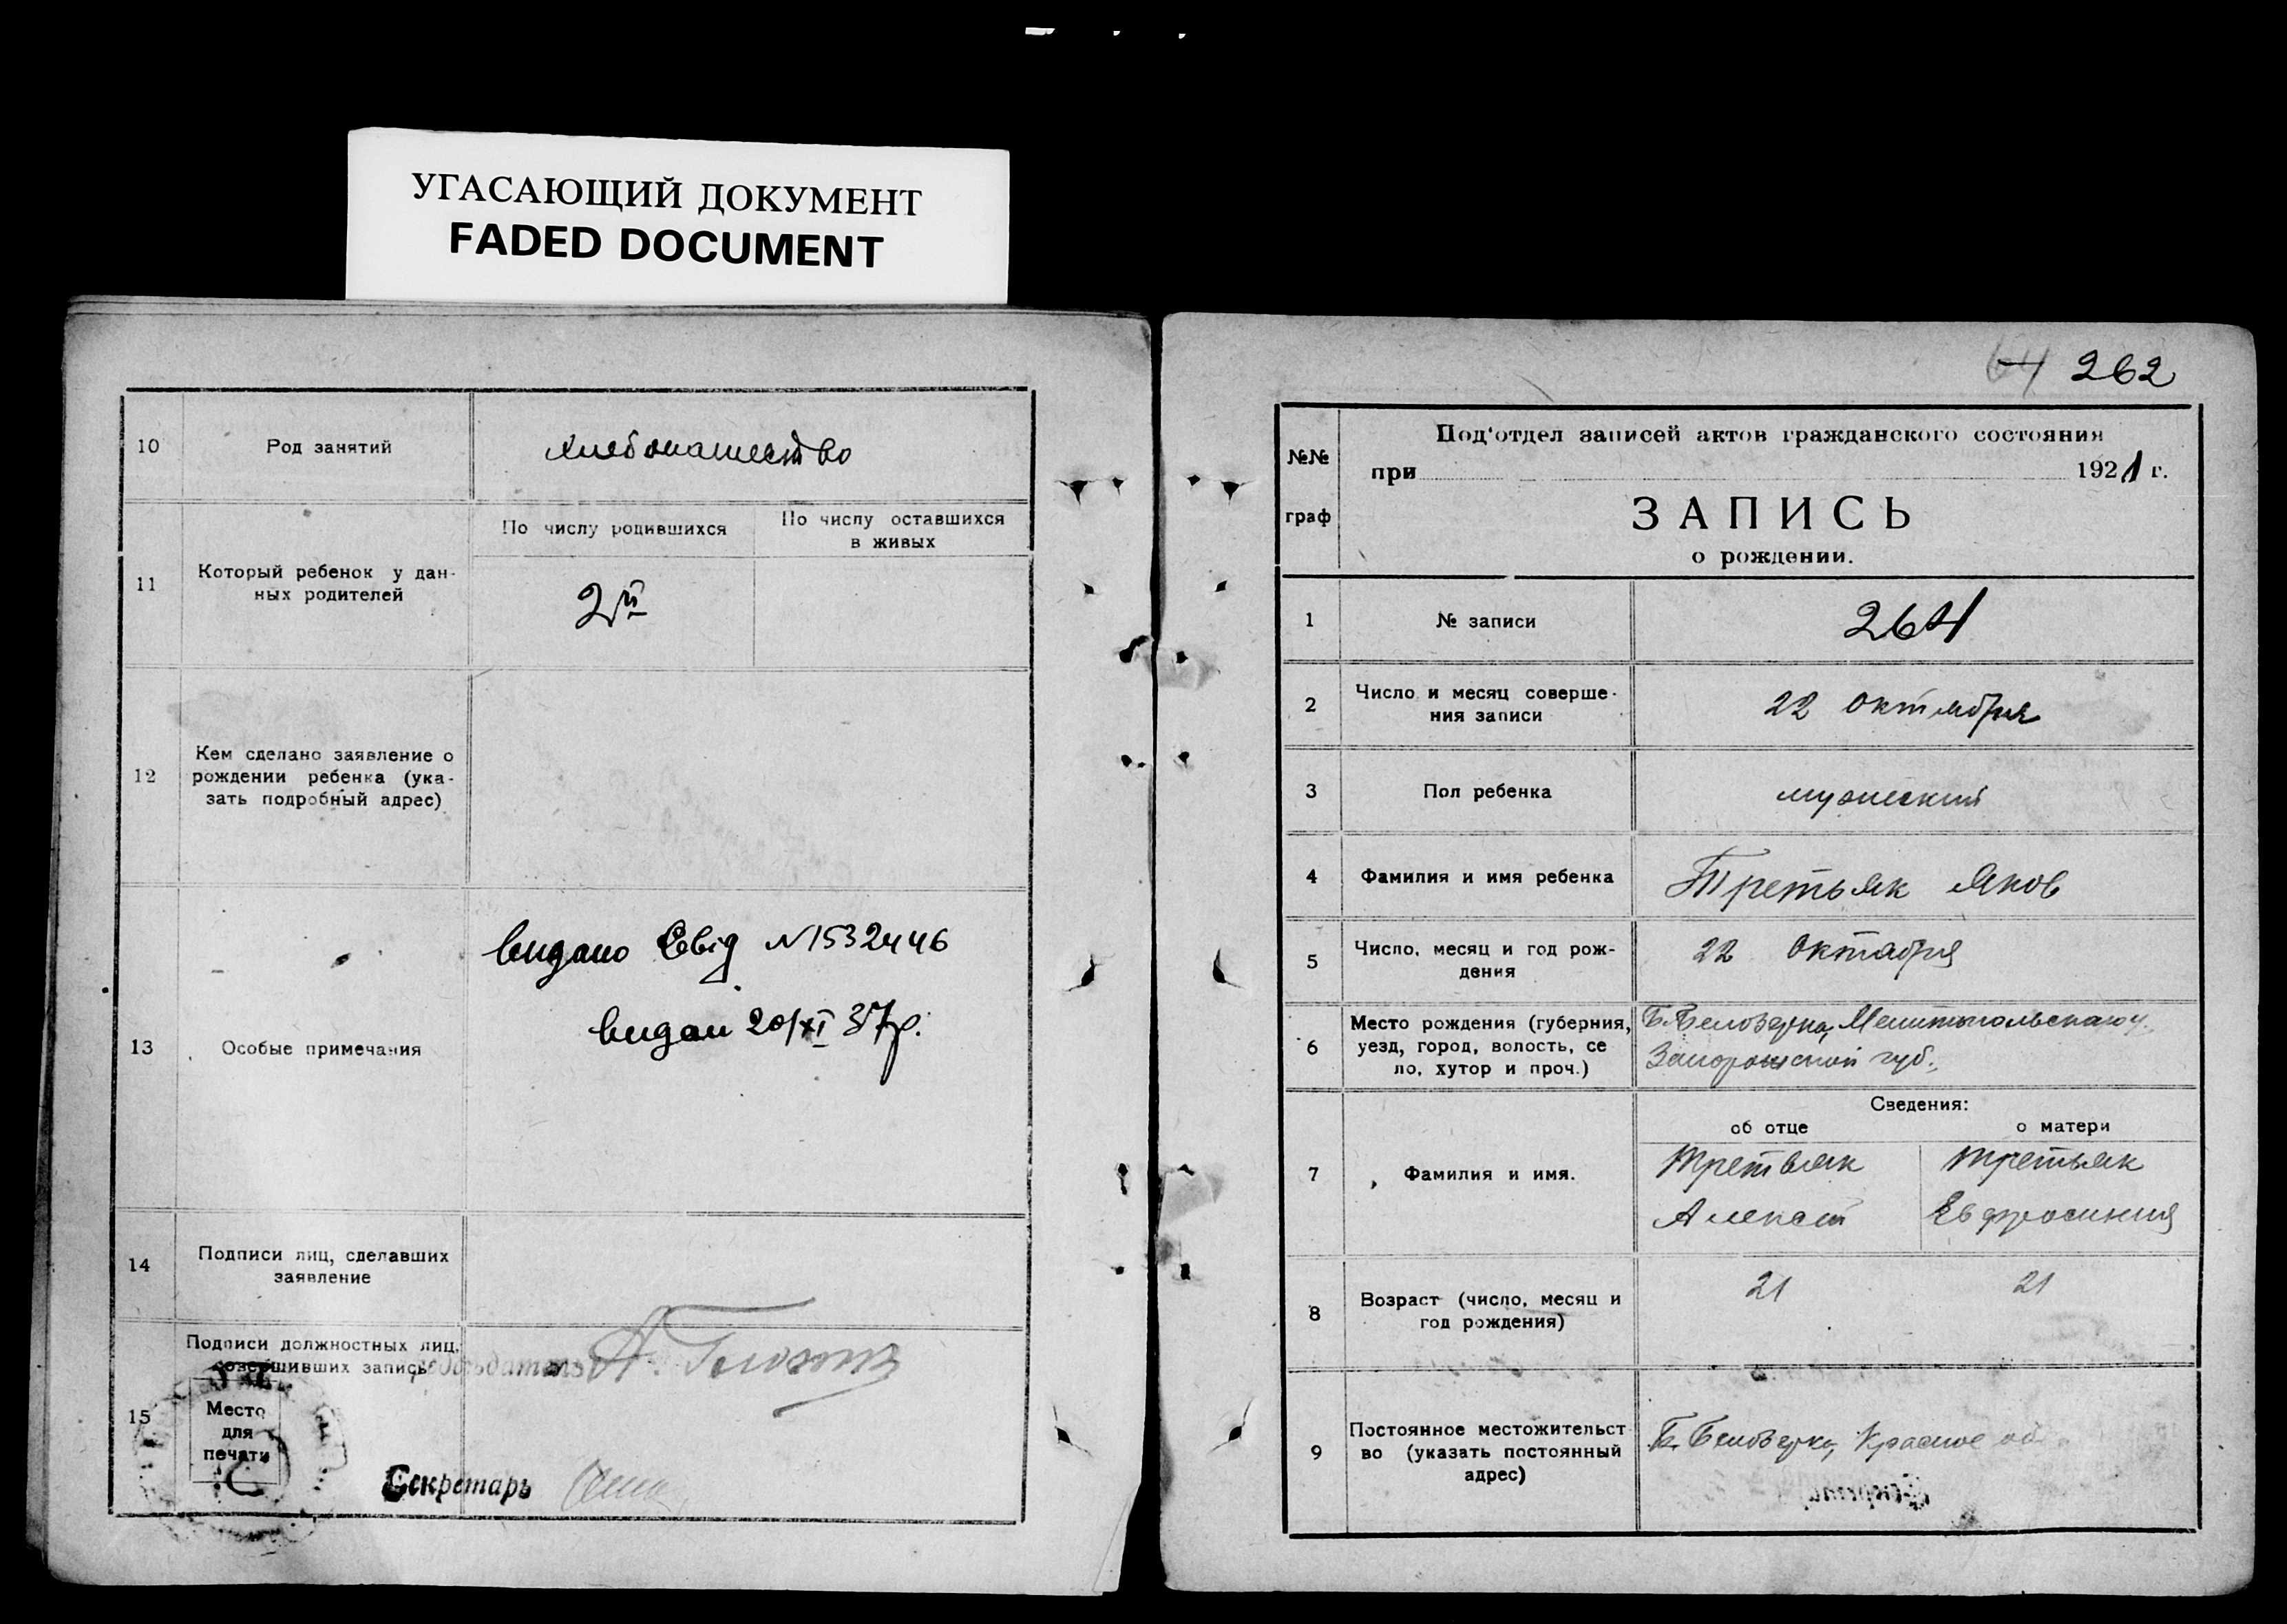 УГАСАЮЩИЙ ДОКУМЕНТ
FADED DOCUMENT
10
Род занятий
хлебопашество
11
Который ребенок у дан-
ных родителей
По числу родившихся
По числу оставшихся
в живых
2й
12
Кем сделано заявление о
рождении ребенка (ука-
зать подробный адрес)
13
Особые примечания
видано Свід N1532446
видан 20/XI 37р.
14
Подписи лиц, сделавших
заявление
15
Подписи должностных лиц,
совершивших запись
Место
для
печати
Секретарь
64 262
№№
граф
Под'отдел записей актов гражданского состояния
при 1921 г.
ЗАПИСЬ
о рождении.
1
№ записи
264
2
Число и месяц соверше-
ния записи
22 октября
3
Пол ребенка
мужеский
4
Фамилия и имя ребенка
Третьяк Яков
5
Число, месяц и год рож-
дения
22 Октября
6
Место рождения (губерния,
уезд, город, волость, се
ло, хутор и проч.)
Б. Белозерка, Мелитопольскаго у.
Запорожской губ.
Сведения:
об отце
о матери
7
Фамилия и имя.
Третьяк
Алексей
Третьяк
Евфросиния
8
Возраст (число, месяц и
год рождения)
21
21
9
Постоянное местожительст
во (указать постоянный
адрес)
Б. Белозерка, Красное об